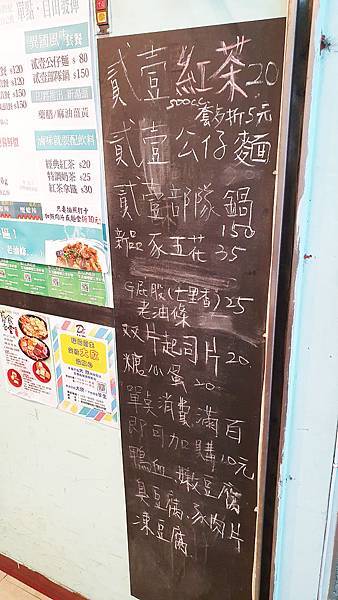 單點，自由發揮
異國風味套餐
貳壹公仔麵 $80
貳壹部隊鍋 $150
滷味就要配飲料
經典紅茶 $20
特調奶茶 $25
紅茶拿鐵 $30
貳壹紅茶20
500cc
套餐折5元
貳壹公仔麵
貳壹部隊鍋
150
新品 豕五花 35
ㄐ屁股(七里香)25
老油條
双片起司片20
糖心蛋 20
單筆消費滿百
即可加購10元
鴨血.嫩豆腐
臭豆腐.豕肉片
凍豆腐